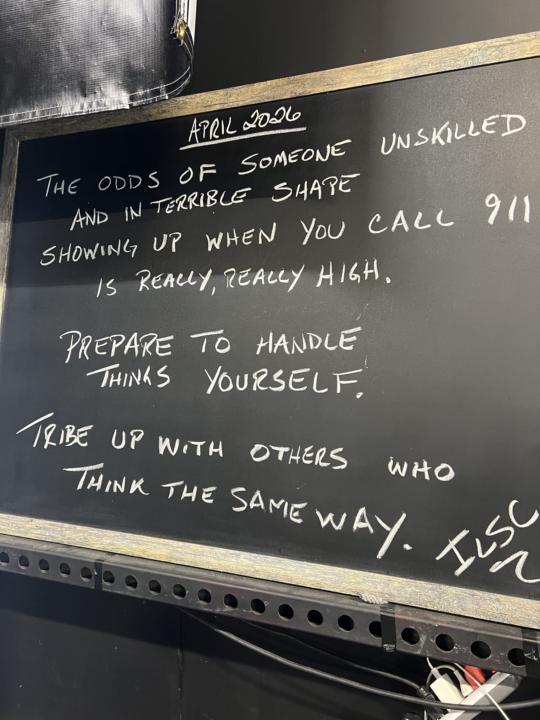 APRIL 2026
THE ODDS OF SOMEONE UNSKILLED
AND IN TERRIBLE SHAPE
SHOWING UP WHEN YOU CALL 911
IS REALLY, REALLY HIGH.
PREPARE TO HANDLE
THINGS YOURSELF.
TRIBE UP WITH OTHERS WHO
THINK THE SAME WAY.